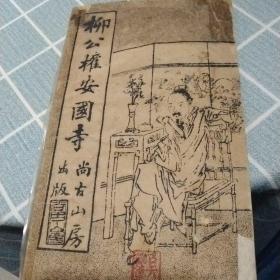 柳公權安國寺
尚古山房
出版